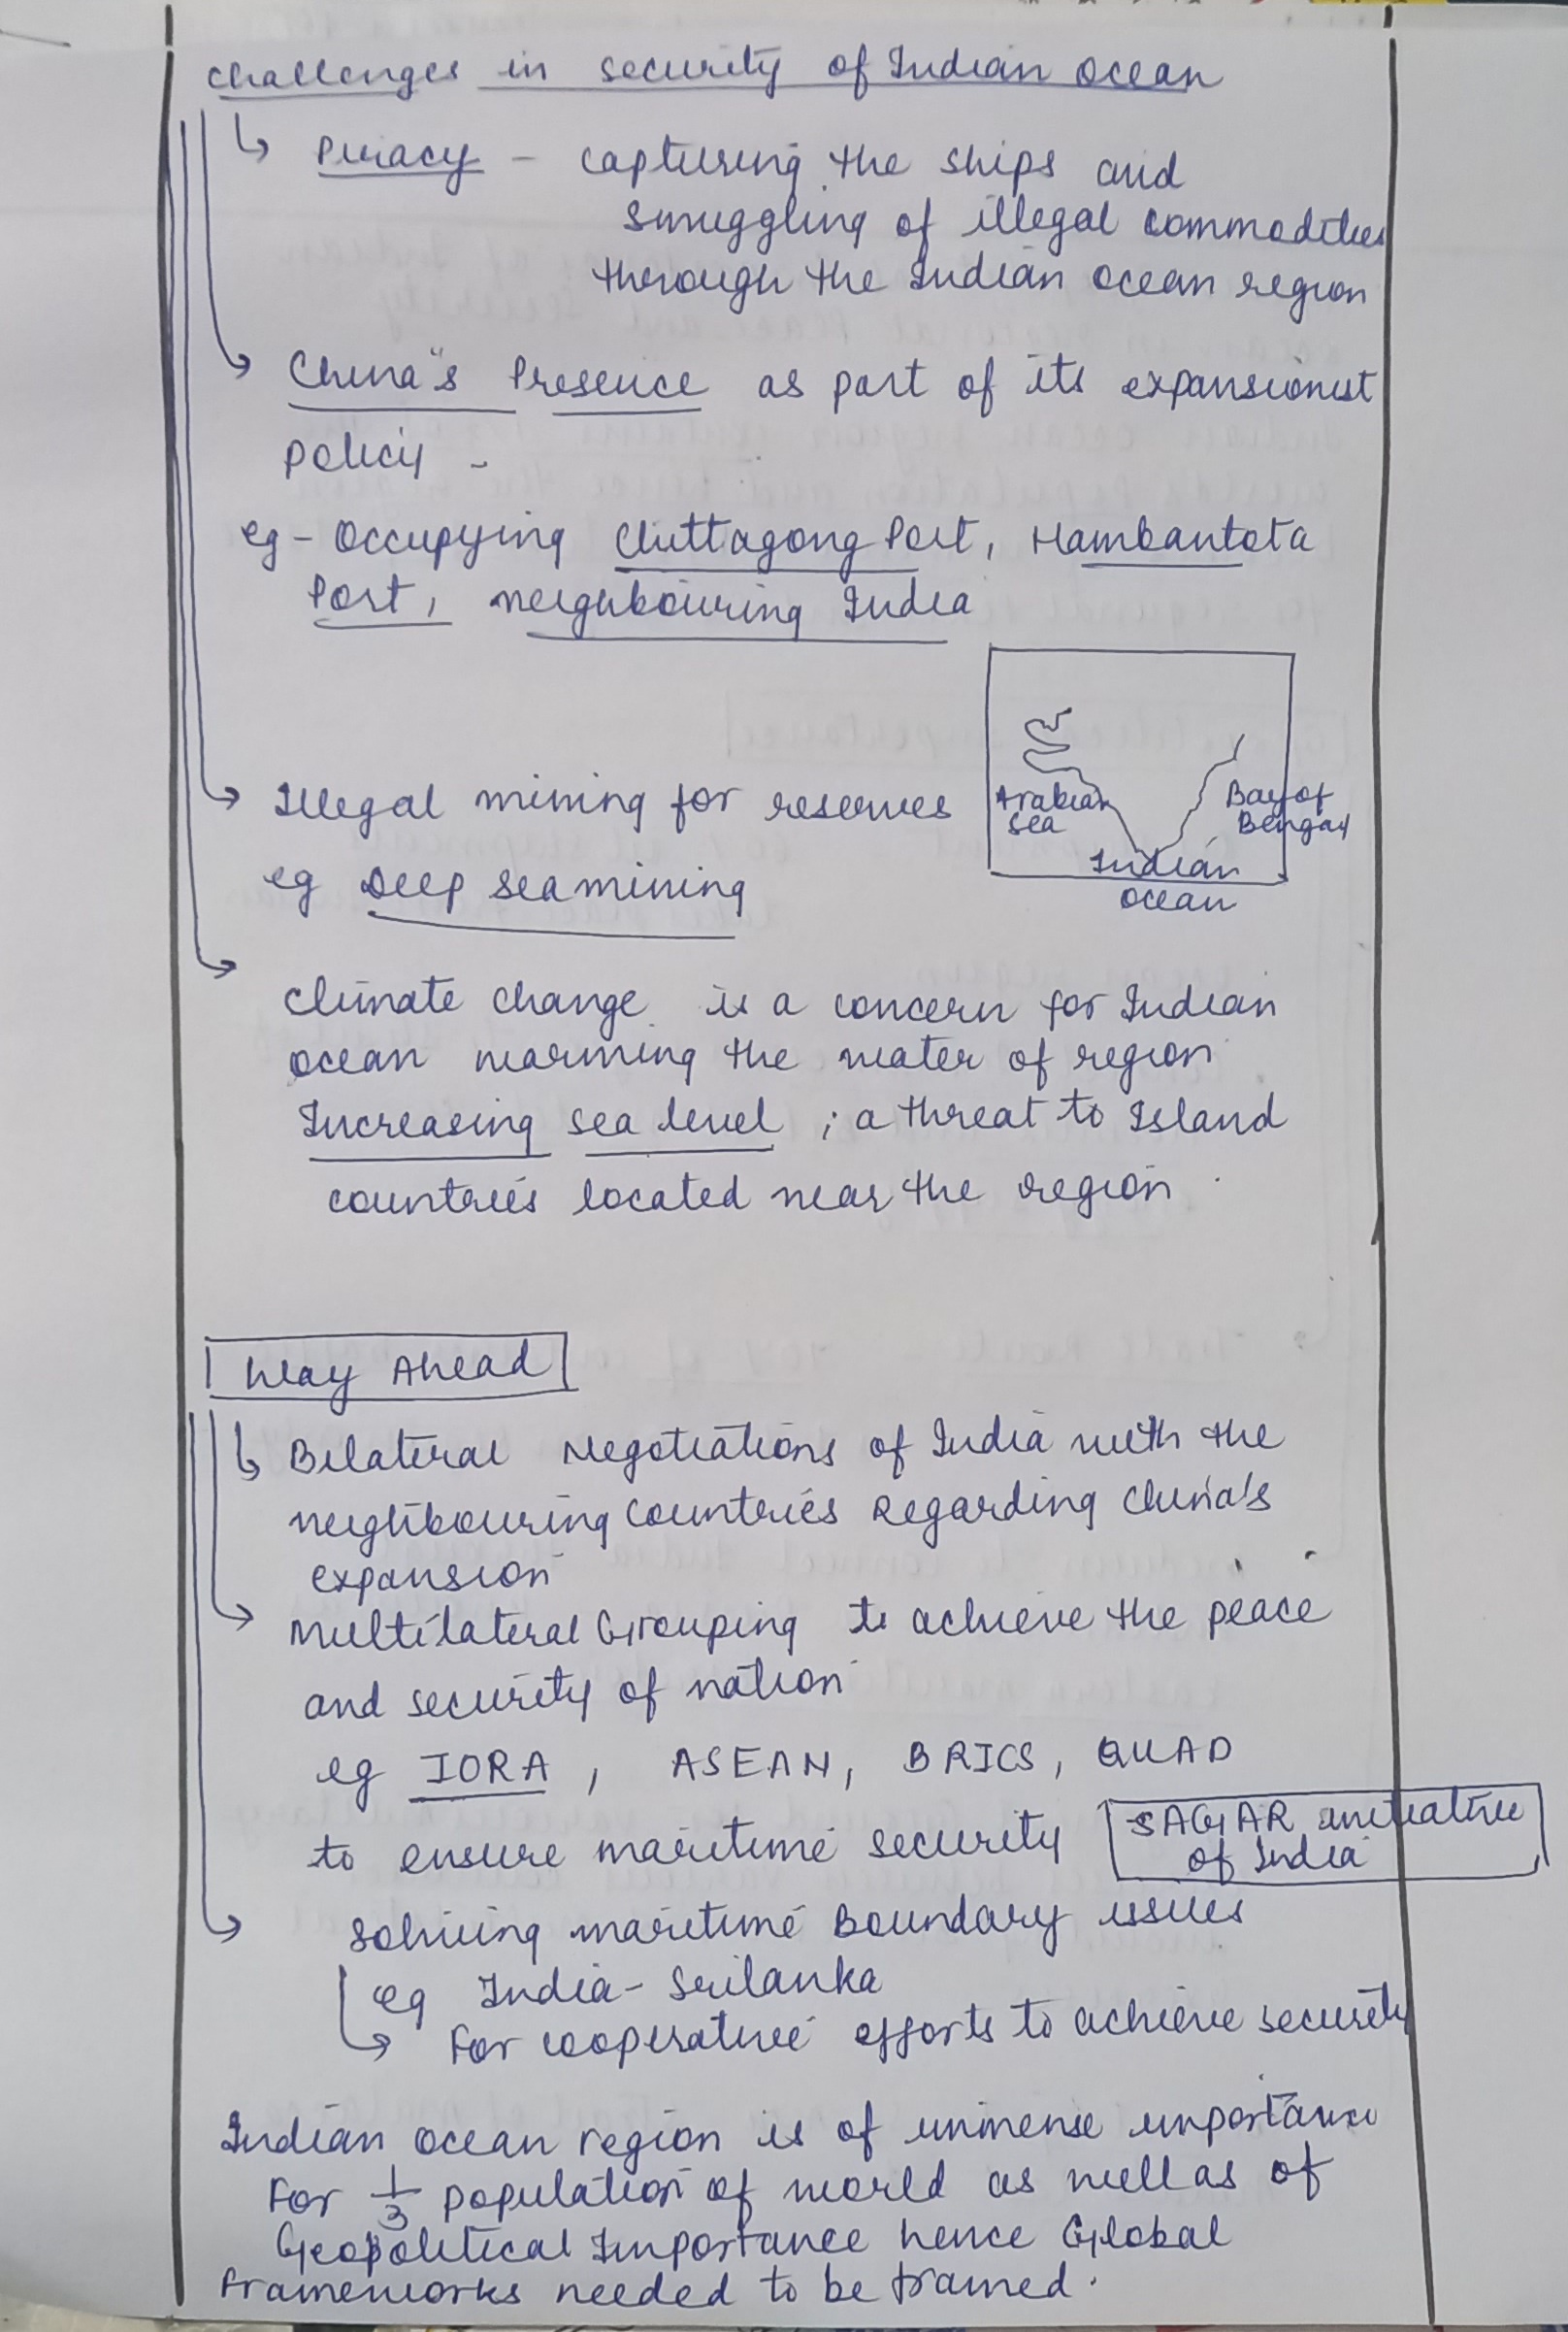 Challenges in security of Indian Ocean
Piracy - capturing the ships and
smuggling of illegal commodities
through the Indian ocean region
China's Presence as part of its expansionist
policy -
eg - Occupying Chittagong Port, Hambantota
Port, neighbouring India
Illegal mining for reserves
eg Deep sea mining
Arabian
Sea
Bay of
Bengal
Indian
Ocean
Climate change is a concern for Indian
ocean warming the water of region
Increasing sea level ; a threat to Island
countries located near the region.
Way Ahead
Bilateral Negotiations of India with the
neighbouring countries Regarding China's
expansion
Multilateral Grouping to achieve the peace
and security of nation
eg IORA, ASEAN, BRICS, QUAD
to ensure maritime security
SAGAR initiative
of India
Solving maritime Boundary issues
eg India - Srilanka
For cooperative efforts to achieve security
Indian Ocean region is of immense importance
For 1/3 population of world as well as of
Geopolitical Importance hence Global
Frameworks needed to be framed.